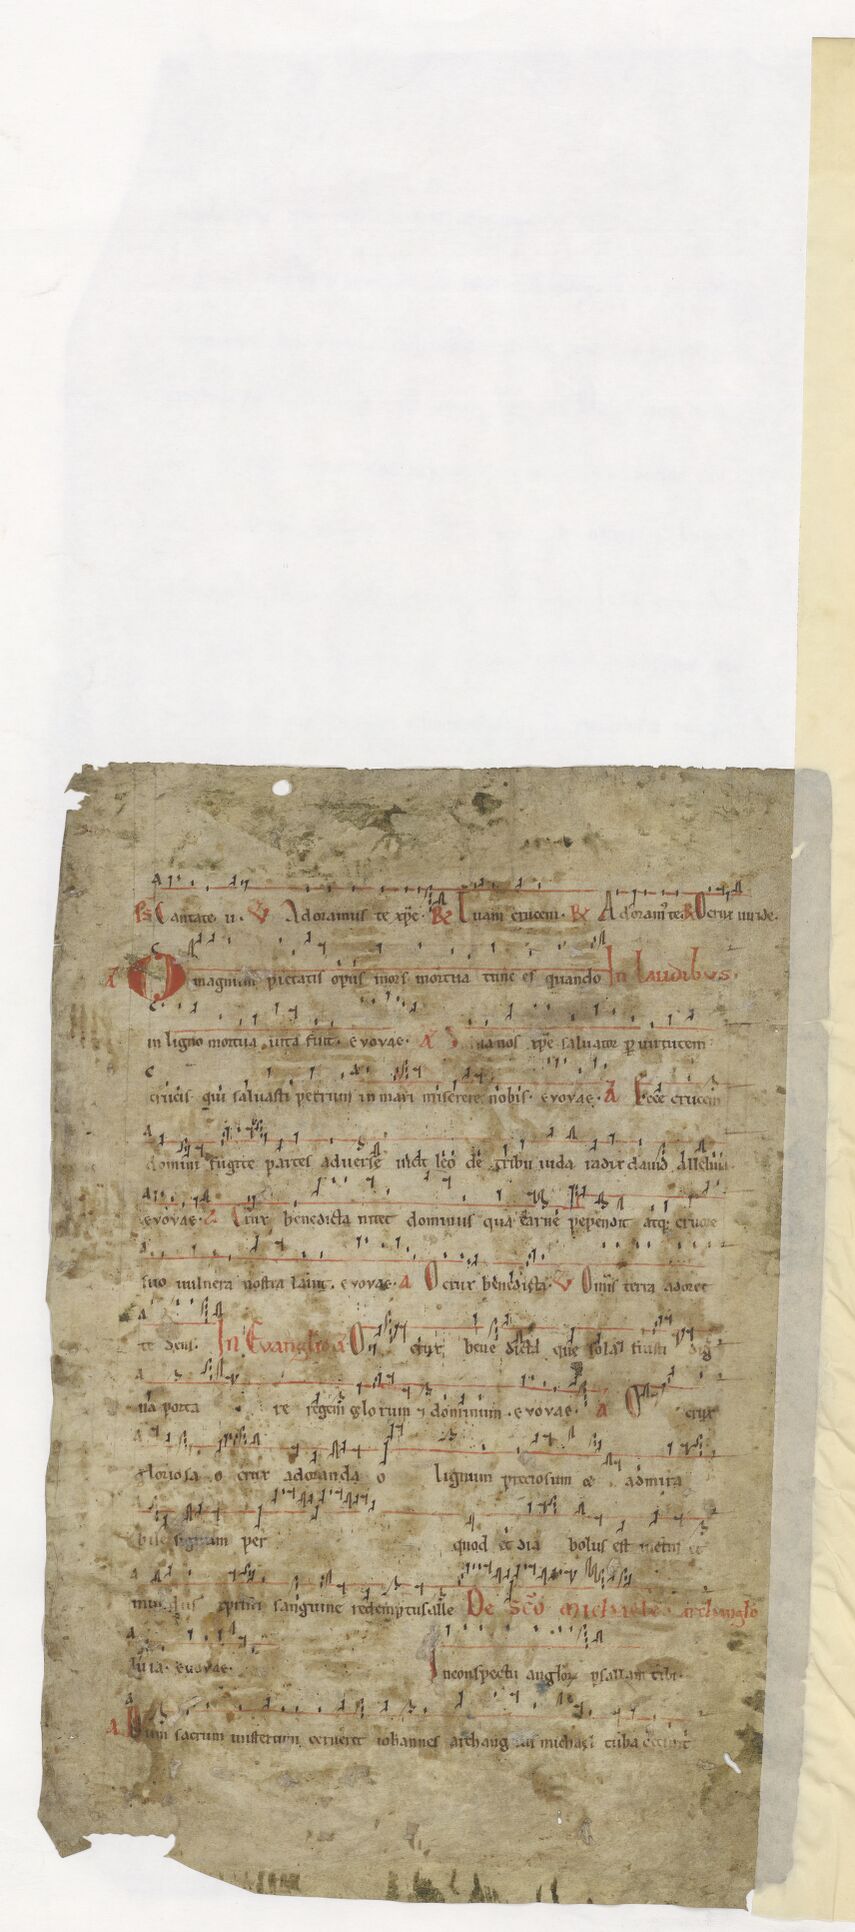 Ps Cantate ii. V Adoramus te xpe. R Tuam crucem. R Adoram' te. R O crux uiride.
A O magnum pietatis opus mors mortua tunc est quando In laudibus.
in ligno mortua uita fuit. evovae. A nos xpe saluator p uirtutem
crucis qui saluasti petrum in mari miserere nobis. evovae. A Ecce crucem
domini fugite partes aduerse uicit leo de tribu iuda radix dauid Alleluia
evovae. A Crux benedicta nitet dominus qua carne pependit atq; cruore
suo uulnera nostra lauit. evovae. A O crux benedicta. V Omnis terra adoret
te deus. In Evanglio A O crux bene dicta que sola fuisti dig
na porta re regem celorum 7 dominum. evovae. A O crux
gloriosa o crux adoranda o lignum preciosum et admira
bile signum per quod et dia bolus est uictus et
mundus xpisti sanguine redemptus alle De Sco Michaele archangelo
luia. evovae. In conspectu anglor psallam tibi.
A Dum sacrum misterium cerneret iohannes archang lus michael tuba cecinit